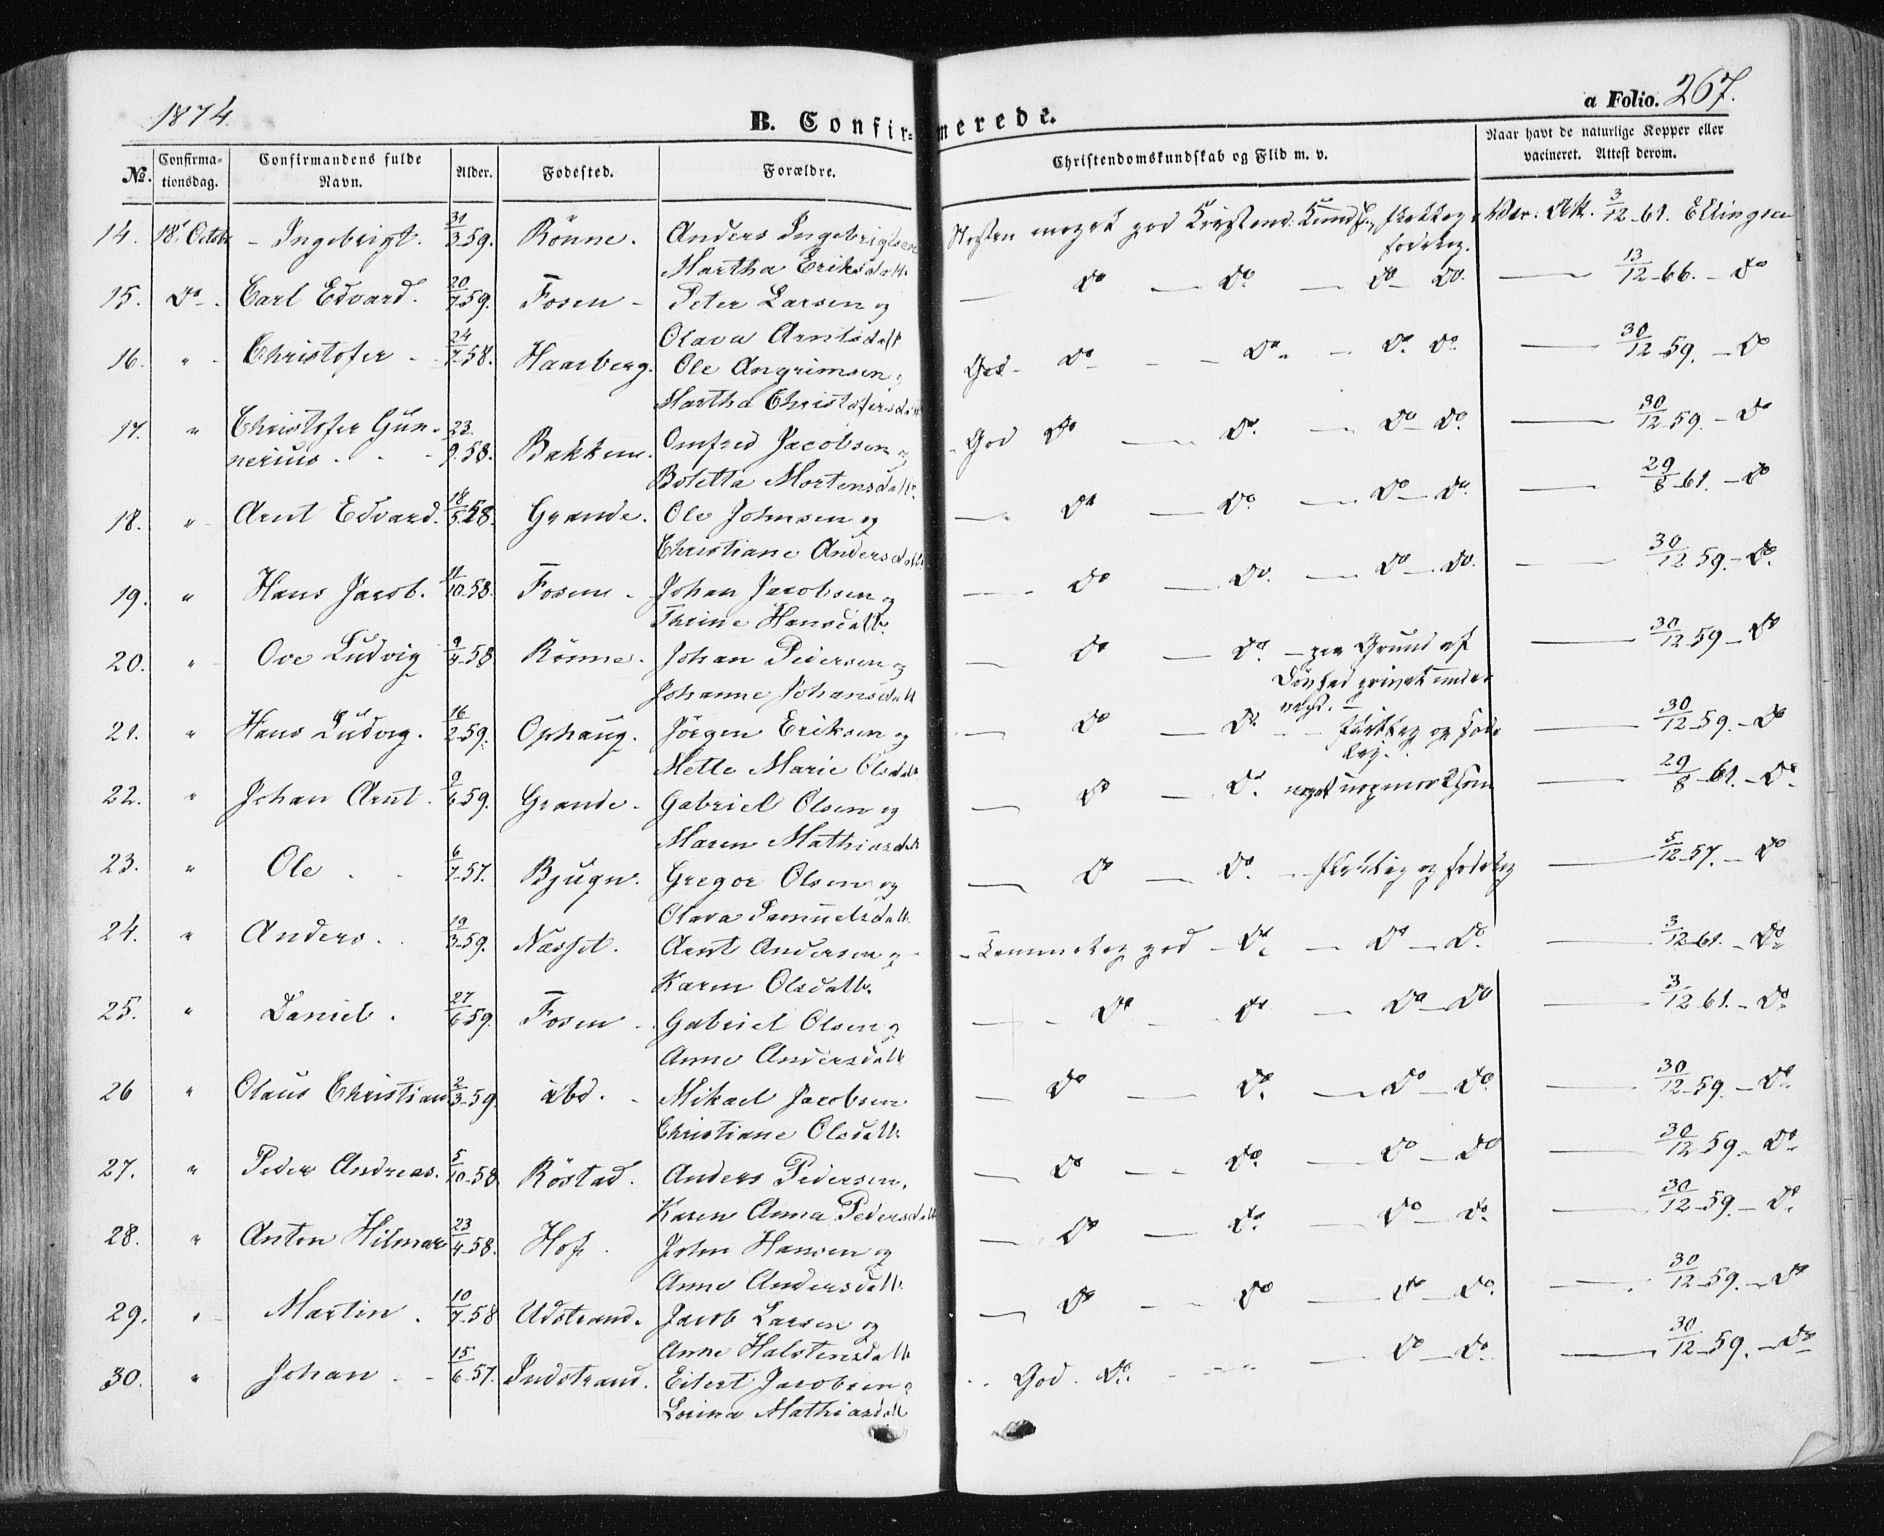 1874.
B. Confirmerede.
a Folio. 267.
No. Confirmationsdag. Confirmandens fulde Navn. Alder. Fødested. Forældre. Christendomskundskab og Flid m. v. Naar havt de naturlige Kopper eller vacineret. Attest derom.
14. 18. Octbr. - Ingebrigt. 31/3 59. Rönne. Anders Ingebrigtsen
Martha Eriksdatt. Næsten meget god Kristend. Kundsk. Vac. Att. 3/12-61. Ellingsen
15. Do - . Carl Edvard. 20/7 59. Fosen - Peter Larsen og
Olava Arntsdatt. — Do — Do. — Do Do. — 13/12-66. - Do
16. " - Christofer - 24/7 58. Haarberg. Ole Angrimsen
Martha Christofersdatt God - Do - - Do - - Do. Do. — 30/12-59. - Do
17. " Christofer Gun-
nerius . - 23/9 58. Bakken. Omfred Jacobsen og
Botetta Mortensdatt. - God Do — Do. — Do Do. — 30/12 59. - Do
18. " - Arnt Edvard. 18/5 58. Grande. Ole Johnsen og
Christiane Andersdatt — Do — Do. — Do - Do. — 29/8-61. - Do
19. " Hans Jacob. 11/10-58. Fosen - Johan Jacobsen og
Thrine Hansdatt. — Do — Do. — Do - Do. — 30/12 59. - Do.
20. " Ove Ludvig 9/4-58 Rönne. Johan Pedersen og
Johanne Johansdatt — Do — Do. - paa Grund af
Døvhed privat under
— 30/12-59 - Do
21. " Hans Ludvig. 16/2-59. Ophaug. Jörgen Eriksen og
Mette Marie Olsdatt — Do — Do. - - flittig og sæde-
lig. — 30/12-59. - Do
22. " Johan Arnt. 9/6-59. Grande. Gabriel Olsen og
Maren Mathiasdatt — Do — Do. noget uopmærksom — 29/8-61. - Do
23. " Ole . . 6/7-57. Bjugn. Gregor Olsen og
Olava Samuelsdatt. — Do — Do. - flittig og sædelig — 5/12-57. - Do
24. " Anders. . 19/3-59. Næsset. Arnt Andersen og
Karen Olsdatt. - Temmelig god - Do. — Do - Do. — 3/12-61. - Do
25. " Daniel . 27/6 59. Fosen - Gabriel Olsen og
Anne Andersdatt — - Do - Do — Do - Do — 3/12 61. - Do
26 " Olaus Christian 2/3-59. ibd. - Mikael Jacobsen
Christiane Olsdatt. — Do — Do. — Do - Do. — 30/12-59. - Do
27. " Peder Andreas. 5/10-58. Röstad. Anders Pedersen.
Karen Anna Pedersdatt — Do — Do. — Do - Do — 30/12-59. - Do
28. " Anton Hilmar 23/4-58. Hof. John Hansen og
Anne Andersdatt. — Do — Do. — Do - Do. — 30/12-59. - Do
29. " - Martin . 10/7-58 Udstrand. Jacob Larsen og
Anne Halstensdatt — Do — Do — Do - Do. — 30/12-59. - Do
30. " Johan . - 15/6-57. Indstrand. Eilert Jacobsen
Lorina Mathiasdatt - . God . Do. - - - — Do - Do. — 30/12-59. - Do